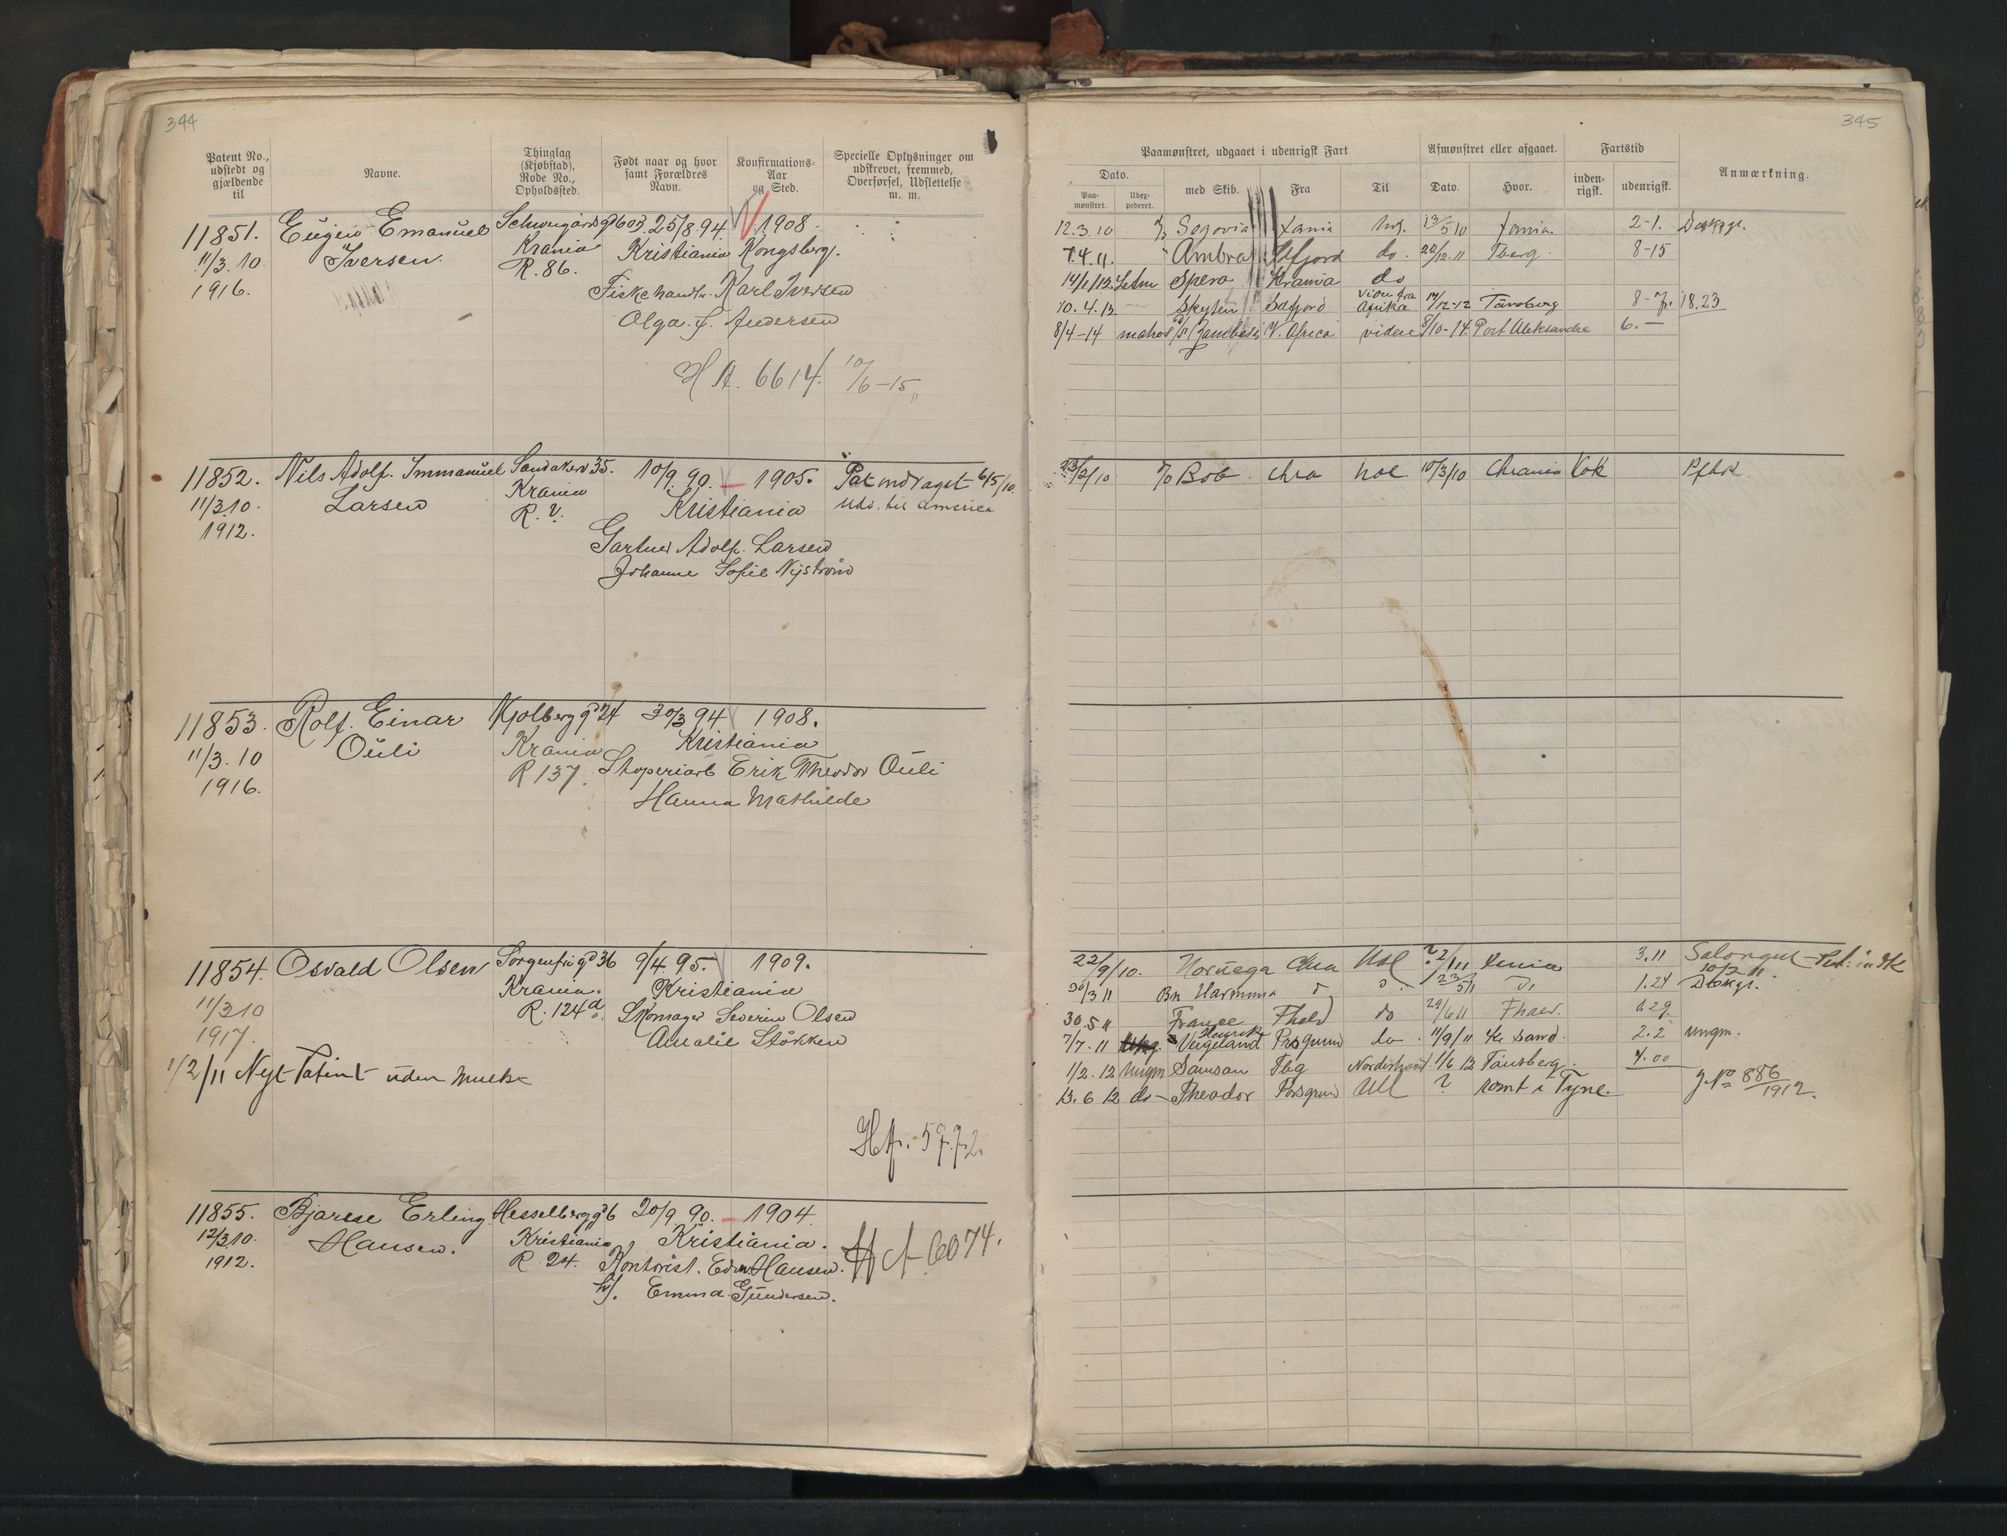 344
Patent No., udstedt og gjældende til
Navne.
Thinglag (Kjøbstad), Rode No., Opholdssted.
Født naar og hvor samt Forældres Navn.
Konfirmations- Aar og Sted.
Specielle Oplysninger om udskrevet, fremmed, Overførsel, Udslettelse m. m.
11851. Eugen Emanuel 25/8 94. 1908.
11/3. 10. Iversen. Krania Kristiania Kongsberg.
1916. R. 86. Fiskehandl. Karl Iversen
Olga Andersen
6614. 10/6-15
11852. Nils Adolf Immanuel Sandakerv 35. 10/9. 90. 1905. Pat. inddraget 6/5/10.
11/3.10. Larsen Krania Kristiania Uds. til America
1912. R. V.
Gartner Adolf Larsen
Johanne Sofie Nyström
11853. Rolf Einar Kjolbergg 24 30/3 94 1908.
11/3. 10 Ouli Krania Kristiania
1916. R 137. Erik Theodor Ouli
Hanna Mathilde
11854. Osvald Olsen Sorgenfrigd 36 9/4 95. 1909.
11/3 10 Krania. Kristiania
1917. R. 124 d. Skomager Severin Olsen
Amalie Stokken
1/2/11 Nyt Patent uden Mulkt
Hf. 5972.
11855. Bjarne Erling Hesselbergg 6 20/9. 90. 1904.
12/3.10. Hansen. Kristiania Kristiania.
1912. R. 24. Kontorist. Edv. Hansen. 6074.
Emma Gundersen.
345
Paamønstret, udgaaet i udenrigsk Fart
Afmønstret eller afgaaet.
Fartstid
Anmærkning.
Dato.
Paa- mønstret.
Udex- pederet.
med Skib.
Fra
Til
Dato.
Hvor.
inden- rigsk.
udenrigsk.
12.3.10 Segovia 13/5 10 2-1.
7.4.11. Ambra do. 20/12.11 Tberg. 8-15
14/1/12. Spero Krania do
10.4.12 Skytten Sdfjord Vidre fra Afrika 14/12-12 Tønsberg 18.23
8/4-14 V. Africa videre 8/10-14. Port Aleksandra 6.-
23/2/10 Bob Chra hol. 10/3/10 Chrania Kok
22/9/10. Noruega Chra Hol 3.11
30/3 11 Harmonia 23/5 11 1.24
30.5 11 France do 29/6 11
7/7. 11 Prsgrund do. 11/9/11 2.2 ungm.
1/2. 12 ungm Samson Tbg 1/6 12 Tønsberg. 7.00
13. 6 12 do- Theodor Porsgrund romt i Tyne. J. No 886/1912.